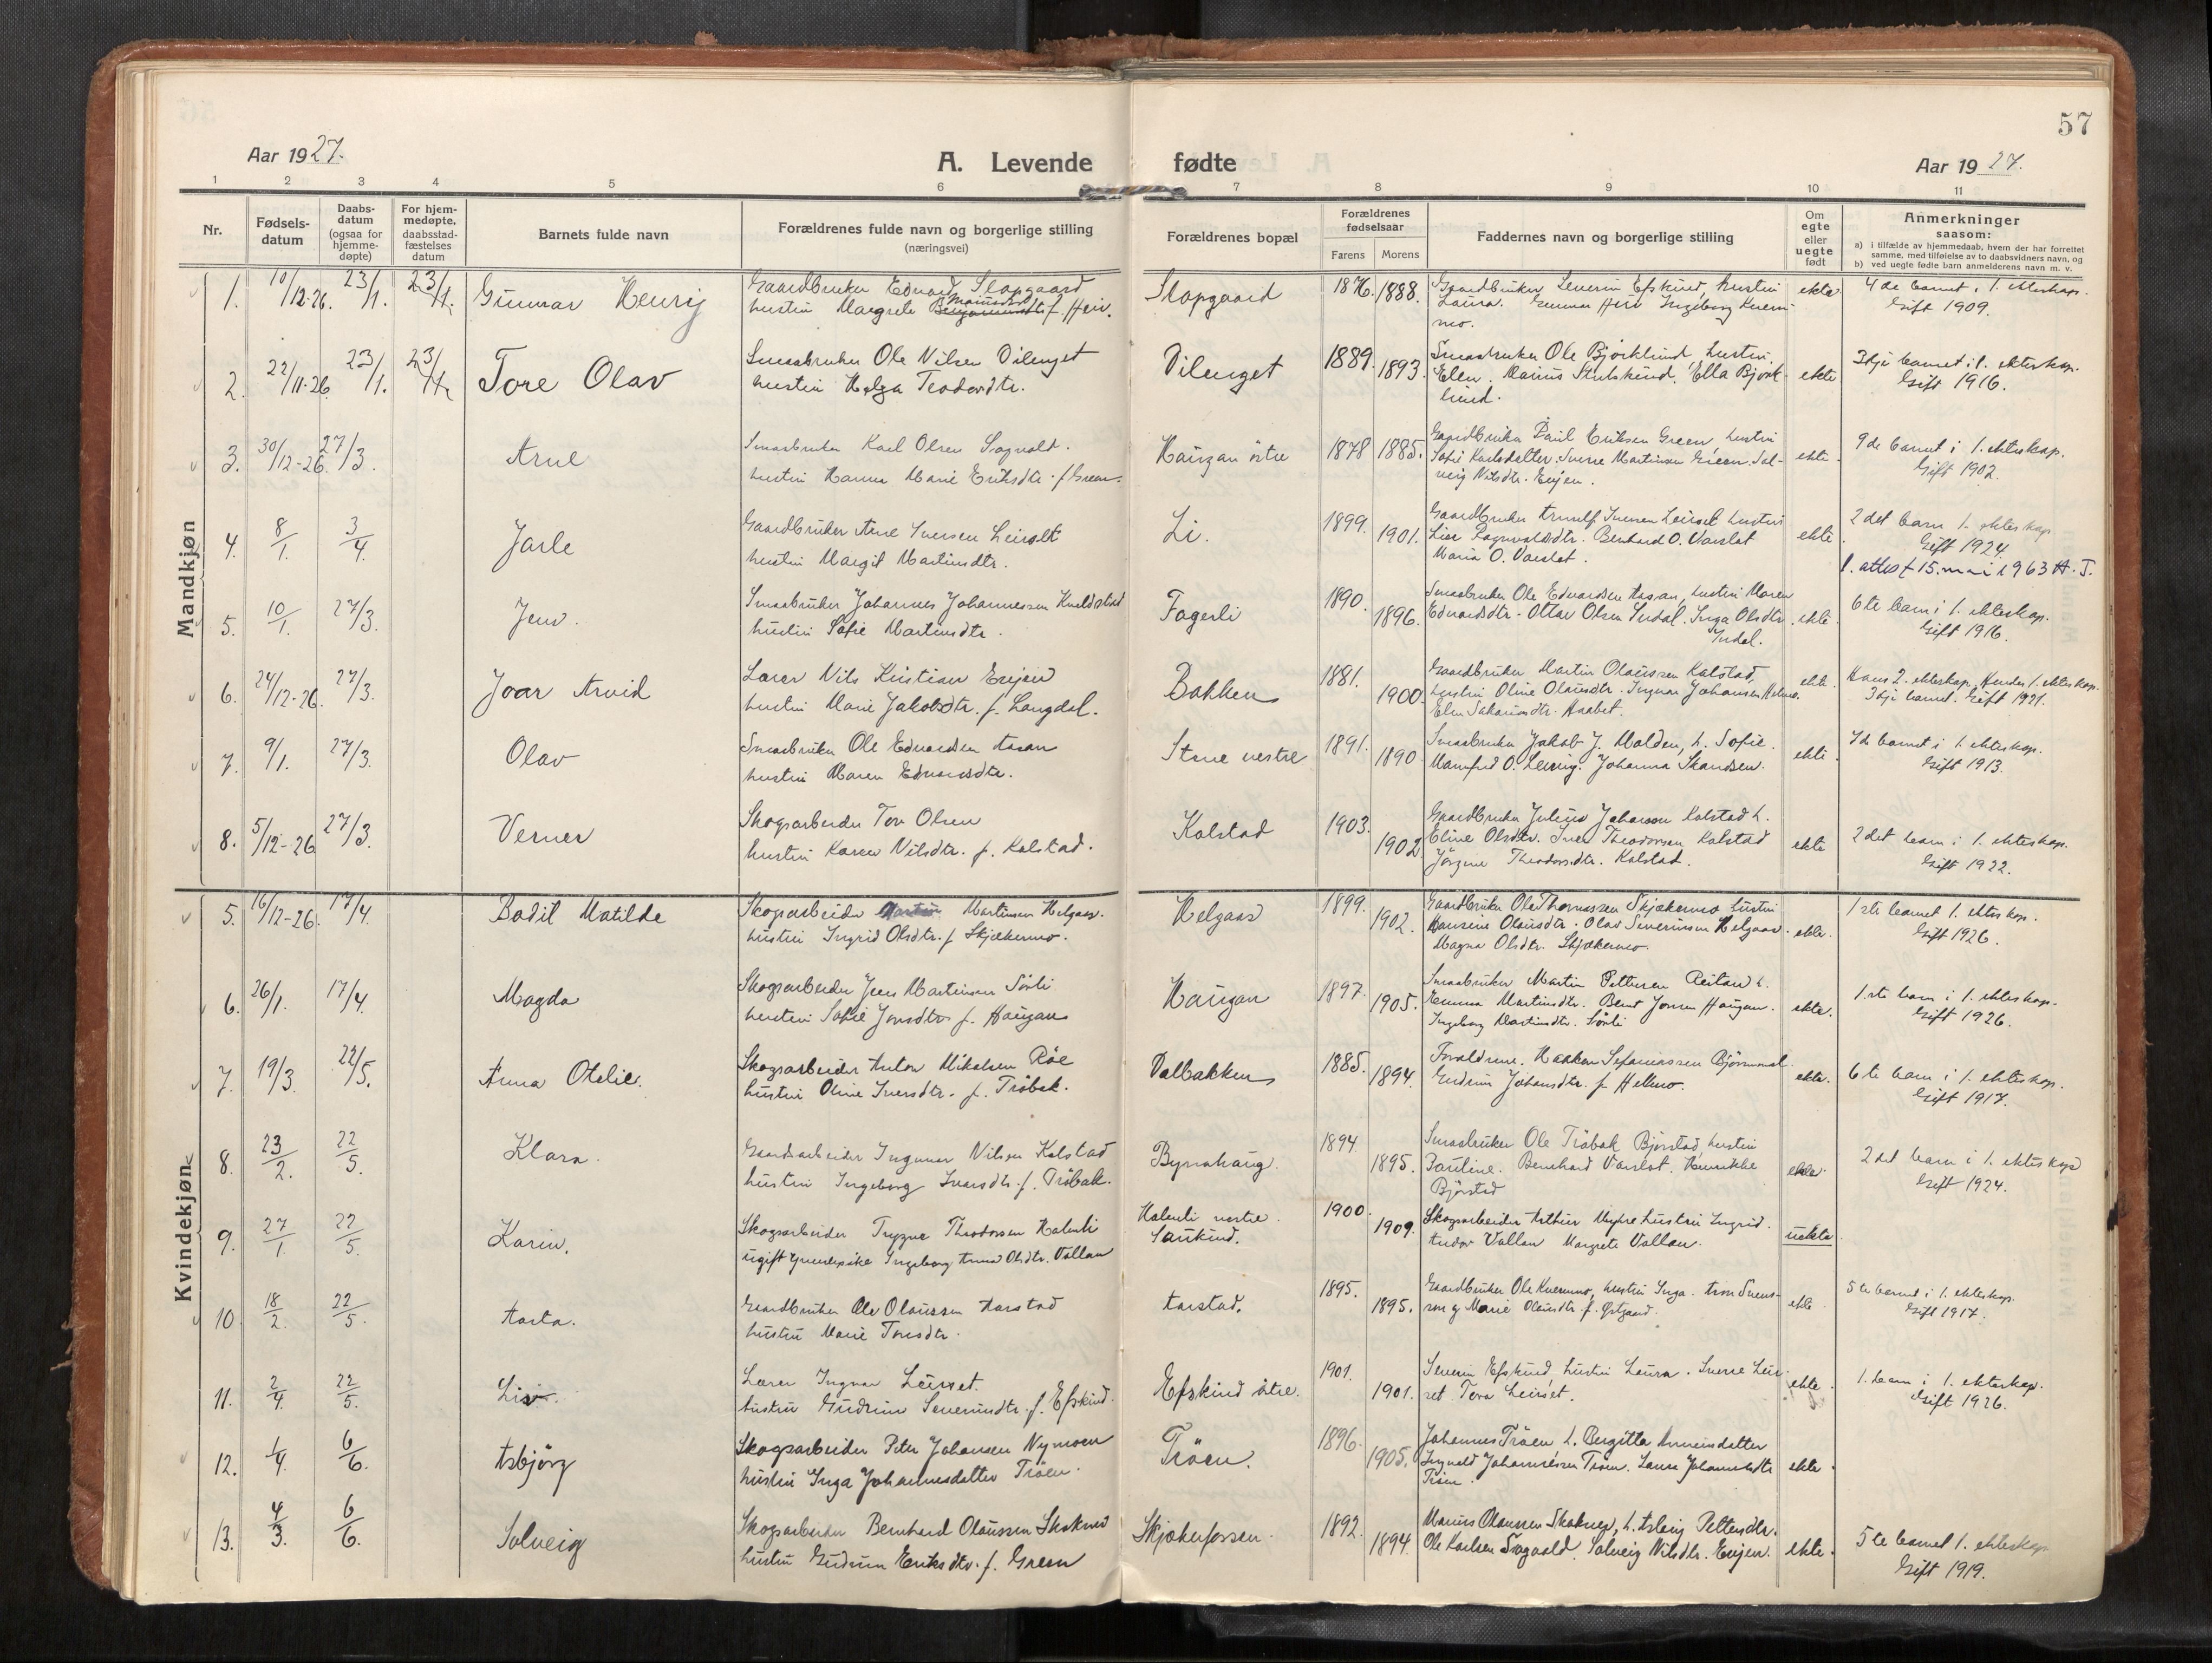 57
Aar 1927.
A. Levende
fødte
Aar 1927.
1 2 3 4 5 6 7 8 9 10 11
Nr.
Fødsels-
datum
Daabs-
datum
(ogsaa for
hjemme-
døpte)
For hjem-
medøpte,
daabsstad-
fæstelses
datum
Barnets fulde navn
Forældrenes fulde navn og borgerlige stilling
(næringsvei)
Forældrenes bopæl
Forældrenes
fødselsaar
Farens Morens
Faddernes navn og borgerlige stilling
Om
egte
eller
uegte
født
Anmerkninger
saasom:
a) i tilfælde av hjemmedaab, hvem der har forrettet
samme, med tilføielse av to daabsvidners navn, og
b) ved uegte fødte barn anmelderens navn m. v.
Mandkjøn
1. 10/12-26. 23/1. 23/1. Gunnar Henrij
Gaardbruker Edvard Slapgaard
hustru Margrete f. Heir.
Slapgaard 1876. 1888.
Gaardbruker Severin Efskind, hustru
Laura. Gunnar Heir Ingeborg Kverm-
mo.
ekte
4de barnet i 1. ekteskap.
Gift 1909.
2. 22/11-26. 23/1. 23/1. Tore Olav
Smaabruker Ole Nilsen Vilenget
hustru Helga Teodordtr.
Vilenget 1889. 1893.
Smaabruker Ole Björklund, hustru
Elen. Marius Stubskind. Ella Björk-
lund.
ekte
3dje barnet i 1. ekteskap.
Gift 1916.
3. 30/12-26. 27/3. Arne
Smaabruker Karl Olsen Sagvold.
hustru Hanna Marie Eriksdtr. f. Green.
Haugan östre 1878 1885.
Gaardbruker Paul Eriksen Green, hustru
Sofie Karlsdatter. Sverre Martinsen Green. Sol-
veig Nilsdtr. Evjen.
ekte.
9de barnet i 1. ekteskap.
Gift 1902.
4. 8/1. 3/4. Jarle
Gaardbruker Arne Iversen Leirset
hustru Margit Martinsdtr.
Li. 1899. 1901.
Gaardbruker Arnulf Iversen Leirset hustru
Lise Ragnvaldsdtr. Bernhard O. Varslot
Maria O. Varslot.
ekte
2det barn 1. ekteskap
Gift 1924
l. attest 15. mai 1963 A.T.
5. 10/1. 27/3. Jens.
Smaabruker Johannes Johannessen Kveldstad
hustru Sofie Martinsdtr.
Fagerli 1890. 1896.
Smaabruker Ole Edvardsen Aasan, hustru Maren
Edvardsdtr. Ottar Olsen Indal. Inga Olsdtr
Indal.
ekte.
6te barn i 1. ekteskap.
Gift 1916.
6. 24/12-26. 27/3. Joar Arvid
Lærer Nils Kristian Evjen
hustru Marie Jakobsdtr. f. Langdal.
Bakken 1881. 1900.
Gaardbruker Martin Olaussen Kalstad,
hustru Oline Olausdtr. Ingvar Johansen Helmo.
Elen Sakariasdtr.
ekte.
Hans 2. ekteskap, Hendes 1. ekteskap.
3dje barnet. Gift 1921.
7. 9/1. 27/3. Olav
Smaabruker Ole Edvardsen Aasan
hustru Maren Edvardsdtr.
Stene vestre 1891. 1890
Smaabruker Jakob J. Molden, h. Sofie.
Manfred O. Johanna Skansen.
ekte.
7de barnet i 1. ekteskap.
Gift 1913.
8. 5/12-26 27/3. Verner
Skogsarbeider Tor Olsen
hustru Karen Nilsdtr. f. Kalstad.
Kalstad 1903. 1902
Gaardbruker Julius Johansen Kalstad h.
Eline Olsdtr. Iver Theodorsen Kalstad
Jörgine Theodorsdtr. Kalstad.
ekte
2det barn i 1. ekteskap.
Gift 1922.
Kvindekjøn
5. 16/12-26. 17/4. Bodil Matilde
Skogsarbeider Martinsen Helgaas.
hustru Ingrid Olsdtr. f. Skjækermo.
Helgaas 1899. 1902.
Gaardbruker Ole Thomassen Skjækermo hustru
Hansine Olausdtr. Olav Severinsen Helgaas.
Magna Olsdtr. Skjækermo.
ekte.
1ste barnet 1. ekteskap.
Gift 1926.
6. 26/1. 17/4. Magda
Skogsarbeider Jens Martinsen Sörli
hustru Sofie Jonsdtr f. Haugan
Haugan 1897. 1905.
Smaabruker Martin Pettersen Reitan h.
Emma Martinsdtr. Bernt Jonsen Haugan.
Ingeborg Martinsdtr. Sörli
ekte.
1.ste barn i 1. ekteskap.
Gift 1926.
7. 19/3. 22/5. Anna Otelie.
Skogsarbeider Anton Mikalsen Röe
hustru Oline Iversdtr. f. Tröbak.
Dalbakken 1885. 1894.
Foreldrene. Haakon Sefaniassen Björnmoel
Gudrun Johansdtr. f. Helmo.
ekte.
6te barn i 1. ekteskap.
Gift 1917.
8. 23/2. 22/5. Klara.
Gaardsarbeider Ingvar Nilsen Kalstad
hustru Ingeborg Ivarsdtr. f. Tröbak.
Bynahaug. 1894 1895.
Smaabruker Ole Tröbak Björstad, hustru
Pauline. Bernhard Varslot. Henrikke
Björstad
ekte.
2det barn i 1. ekteskap
Gift 1924.
9. 27/1. 22/5. Karin.
Skogsarbeider Trygve Theodorsen Kolseli
ugift Ingeborg Anna Olsdtr. Vollan
Kolseli vestre.
1900. 1909.
Skogsarbeider Arthur Myhre hustru Ingrid.
Andor Vollan Margrete Vollan.
uekte
10. 18/2. 22/5. Aasta.
Gaardbruker Ole Olaussen Aarstad
hustru Marie Tonsdtr.
Aarstad. 1895. 1895.
Gaardbruker Ole Kvermo, hustru Inga. Aron Svens-
sen og Marie Olausdtr. f. Østgaard.
ekte.
5te barnet i 1. ekteskap.
Gift 1917.
11. 2/4. 22/5. Liv.
Lærer Ingvar Leirset.
hustru Gudrun Severinsdtr. f. Efskind.
Efskind östre. 1901. 1901.
Severin Efskind, hustru Laura. Sverre Leir-
set Tora Leirset.
ekte.
1. barn i 1. ekteskap.
Gift 1926.
12. 1/4. 6/6. Asbjörg
Skogsarbeider Peter Johansen Nymoen
hustru Inga Johannesdatter Tröen.
Tröen. 1896. 1905.
Johannes Tröen h. Bergitta
Ingvald Johannessen Tröen. Laura Johannesdtr
Tröen.
ekte.
13. 4/3. 6/6. Solveig
Skogsarbeider Bernhard Olaussen
hustru Gudrun Eriksdtr. f. Green
Skjækerfossen. 1892. 1894.
Marius Olaussen h. Aslaug Pettersdtr.
Ole Karlsen Sagvold. Solveig Nilsdtr. Evjen.
ekte.
5te barnet 1. ekteskap
Gift 1919.